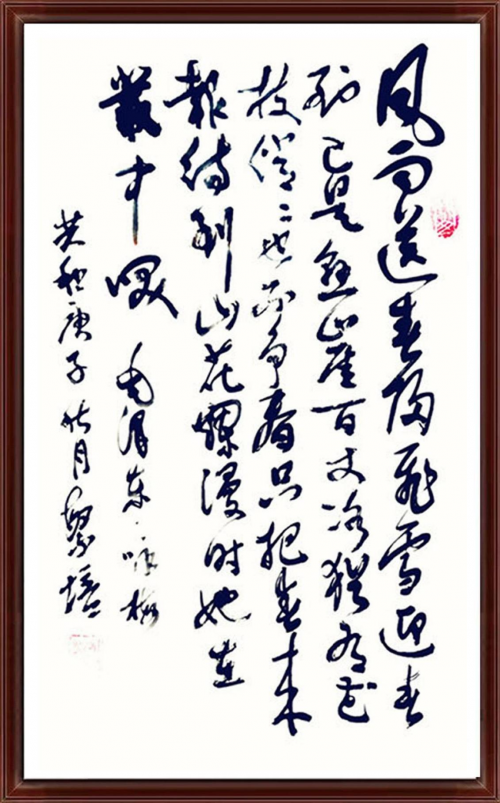 風雨送春歸飛雪迎春
到已是懸崖百丈冰猶有花
枝俏〻也不争春只把春来
報待到山花爛漫时她在
叢中笑 毛泽东·咏梅
共和庚子 月